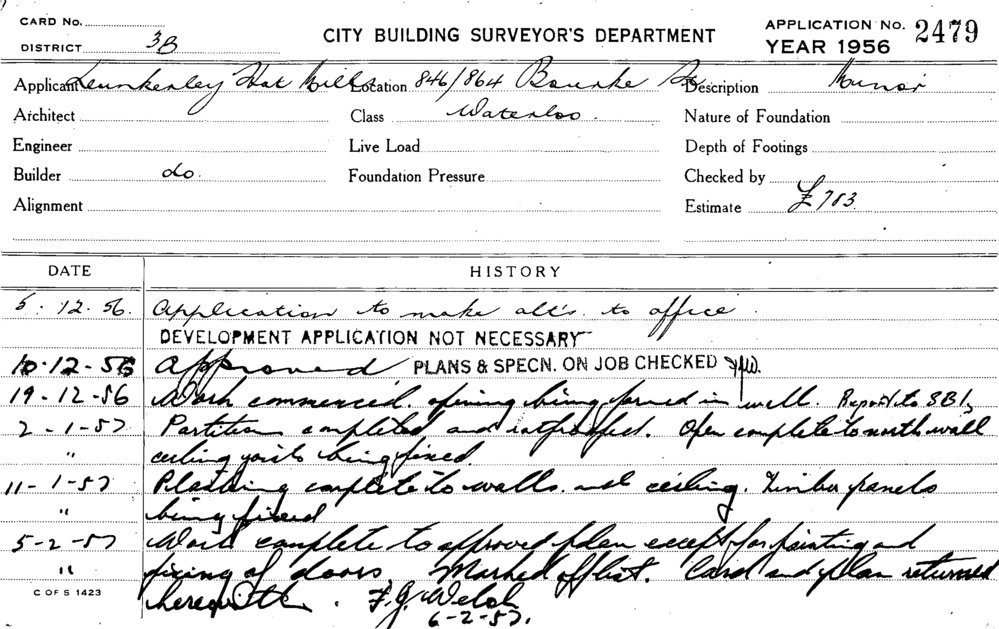 CARD No.
DISTRICT 3B
CITY BUILDING SURVEYOR'S DEPARTMENT
APPLICATION No. 2479
YEAR 1956
Applicant Hat Mills Location 846/864 Bourke St Description Minor
Architect Class Waterloo. Nature of Foundation
Engineer Live Load Depth of Footings
Builder do. Foundation Pressure Checked by
Alignment Estimate £783.
DATE HISTORY
5.12.56. Application to make alt's. to office.
DEVELOPMENT APPLICATION NOT NECESSARY
10.12-56 Approved PLANS & SPECN. ON JOB CHECKED
19-12-56 Work commenced. opening being formed in wall. Report to SBI,
2-1-57 Partition completed and . Open complete to north wall
" ceiling joists being fixed.
11-1-57 complete to walls. and ceiling. Timber panels
" being fixed
5-2-57 Work complete to approved plan except for painting and
" fixing of doors. Marked off list. Card and plan returned
C OF S 1423
herewith. F.J. Welsh
6-2-57.